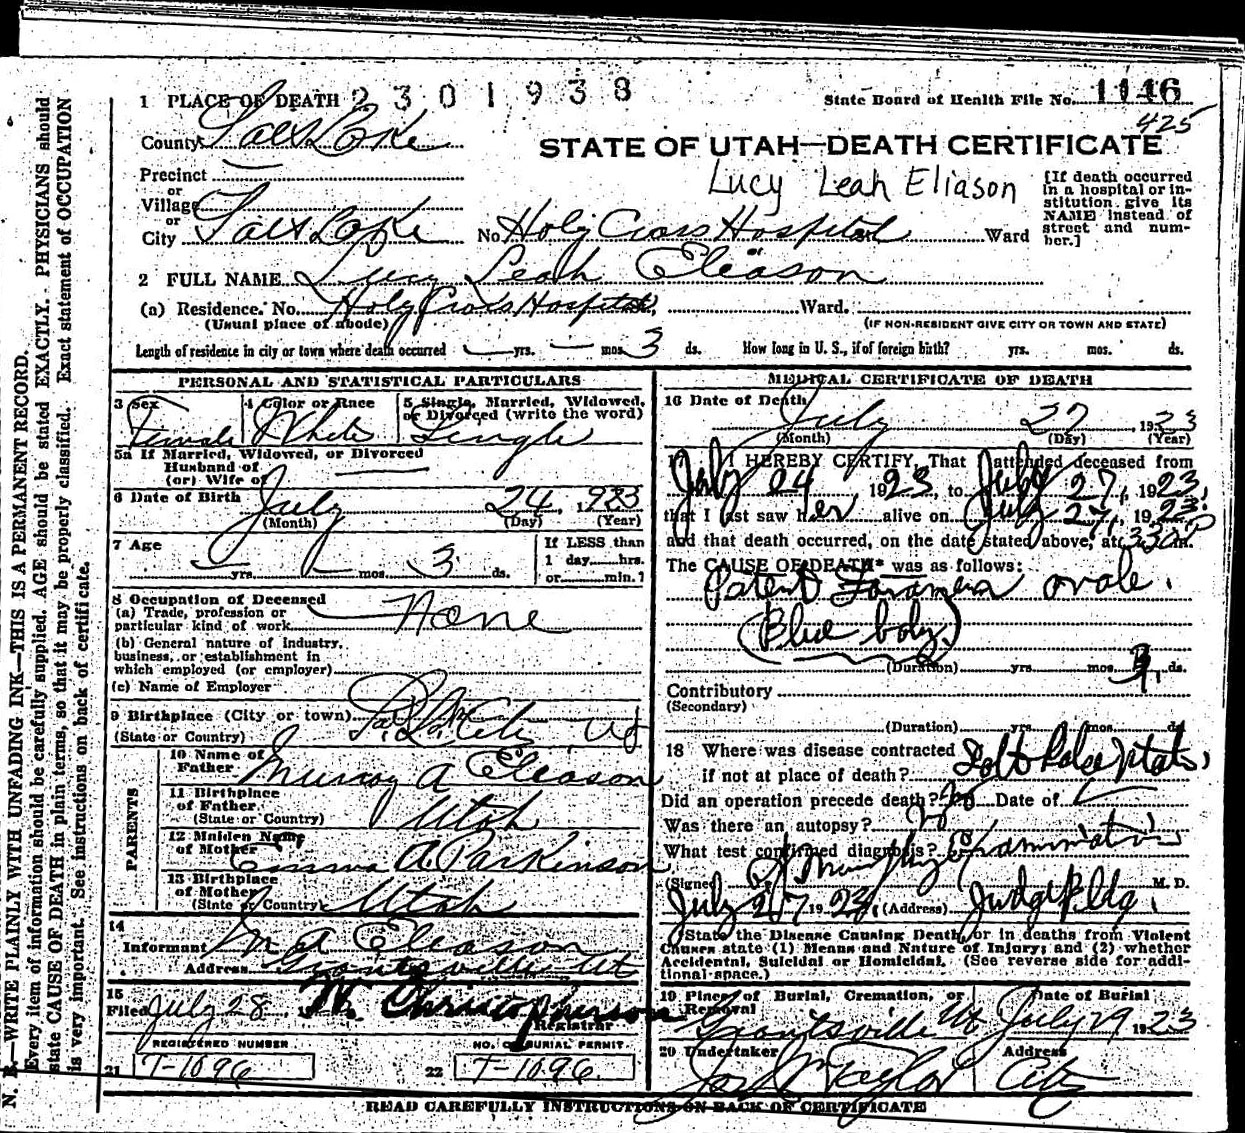 N. B.—WRITE PLAINLY WITH UNFADING INK—THIS IS A PERMANENT RECORD.
Every item of information should be carefully supplied. AGE should be stated EXACTLY. PHYSICIANS should
state CAUSE OF DEATH in plain terms, so that it may be properly classified. Exact statement of OCCUPATION
is very important. See instructions on back of certificate.
1 PLACE OF DEATH 2301938
State Board of Health File No. 1146
425
County Salt Lake
STATE OF UTAH—DEATH CERTIFICATE
Precinct
Lucy Leah Eliason
or
Village
or
City Salt Lake No. Holy Cross Hospital Ward
[If death occurred in a hospital or institution give its NAME instead of street and number.]
2 FULL NAME Lucy Leah Eleason
(a) Residence. No. Holy Cross Hospital, Ward.
(Usual place of abode) (IF NON-RESIDENT GIVE CITY OR TOWN AND STATE)
Length of residence in city or town where death occurred — yrs. — mos. 3 ds. How long in U. S., if of foreign birth? yrs. mos. ds.
PERSONAL AND STATISTICAL PARTICULARS
3 Sex 4 Color or Race 5 Single, Married, Widowed, or Divorced (write the word)
Female White Single
5a If Married, Widowed, or Divorced
Husband of
(or) Wife of
6 Date of Birth July 24, 1923
(Month) (Day) (Year)
7 Age — yrs. — mos. 3 ds.
If LESS than
1 day hrs.
or min.?
8 Occupation of Deceased
(a) Trade, profession or
particular kind of work None
(b) General nature of industry,
business, or establishment in
which employed (or employer)
(c) Name of Employer
9 Birthplace (City or town) City, Ut
(State or Country)
PARENTS
10 Name of
Father Murray A Eleason
11 Birthplace
of Father Utah
(State or Country)
12 Maiden Name
of Mother Emma A. Parkinson
13 Birthplace
of Mother
(State or Country) Utah
14
Informant M A Eleason
Address Grantsville Ut
15
Filed July 28, W. Christopherson
Registrar
REGISTERED NUMBER NO. OF BURIAL PERMIT
21 T-1096 22 T-1096.
MEDICAL CERTIFICATE OF DEATH
16 Date of Death July 27, 1923
(Month) (Day) (Year)
17 I HEREBY CERTIFY, That I attended deceased from
July 24 1923, to July 27, 1923,
that I last saw her alive on July 27, 1923.
and that death occurred, on the date stated above, at 330 P m.
The CAUSE OF DEATH* was as follows:
Patent Foramen ovale.
(Blue baby)
(Duration) yrs. mos. ds.
Contributory
(Secondary)
(Duration) yrs. mos. ds.
18 Where was disease contracted
if not at place of death? Salt Lake Utah,
Did an operation precede death? No Date of
Was there an autopsy? No
What test confirmed diagnosis? Examination
(Signed) M. D.
July 27 1923, (Address) Judge Bldg.
State the Disease Causing Death, or in deaths from Violent
Causes state (1) Means and Nature of Injury; and (2) whether
Accidental, Suicidal or Homicidal. (See reverse side for additional space.)
19 Place of Burial, Cremation, or Removal Date of Burial
Grantsville Ut July 29, 1923
20 Undertaker Address
Taylor City
READ CAREFULLY INSTRUCTIONS ON BACK OF CERTIFICATE